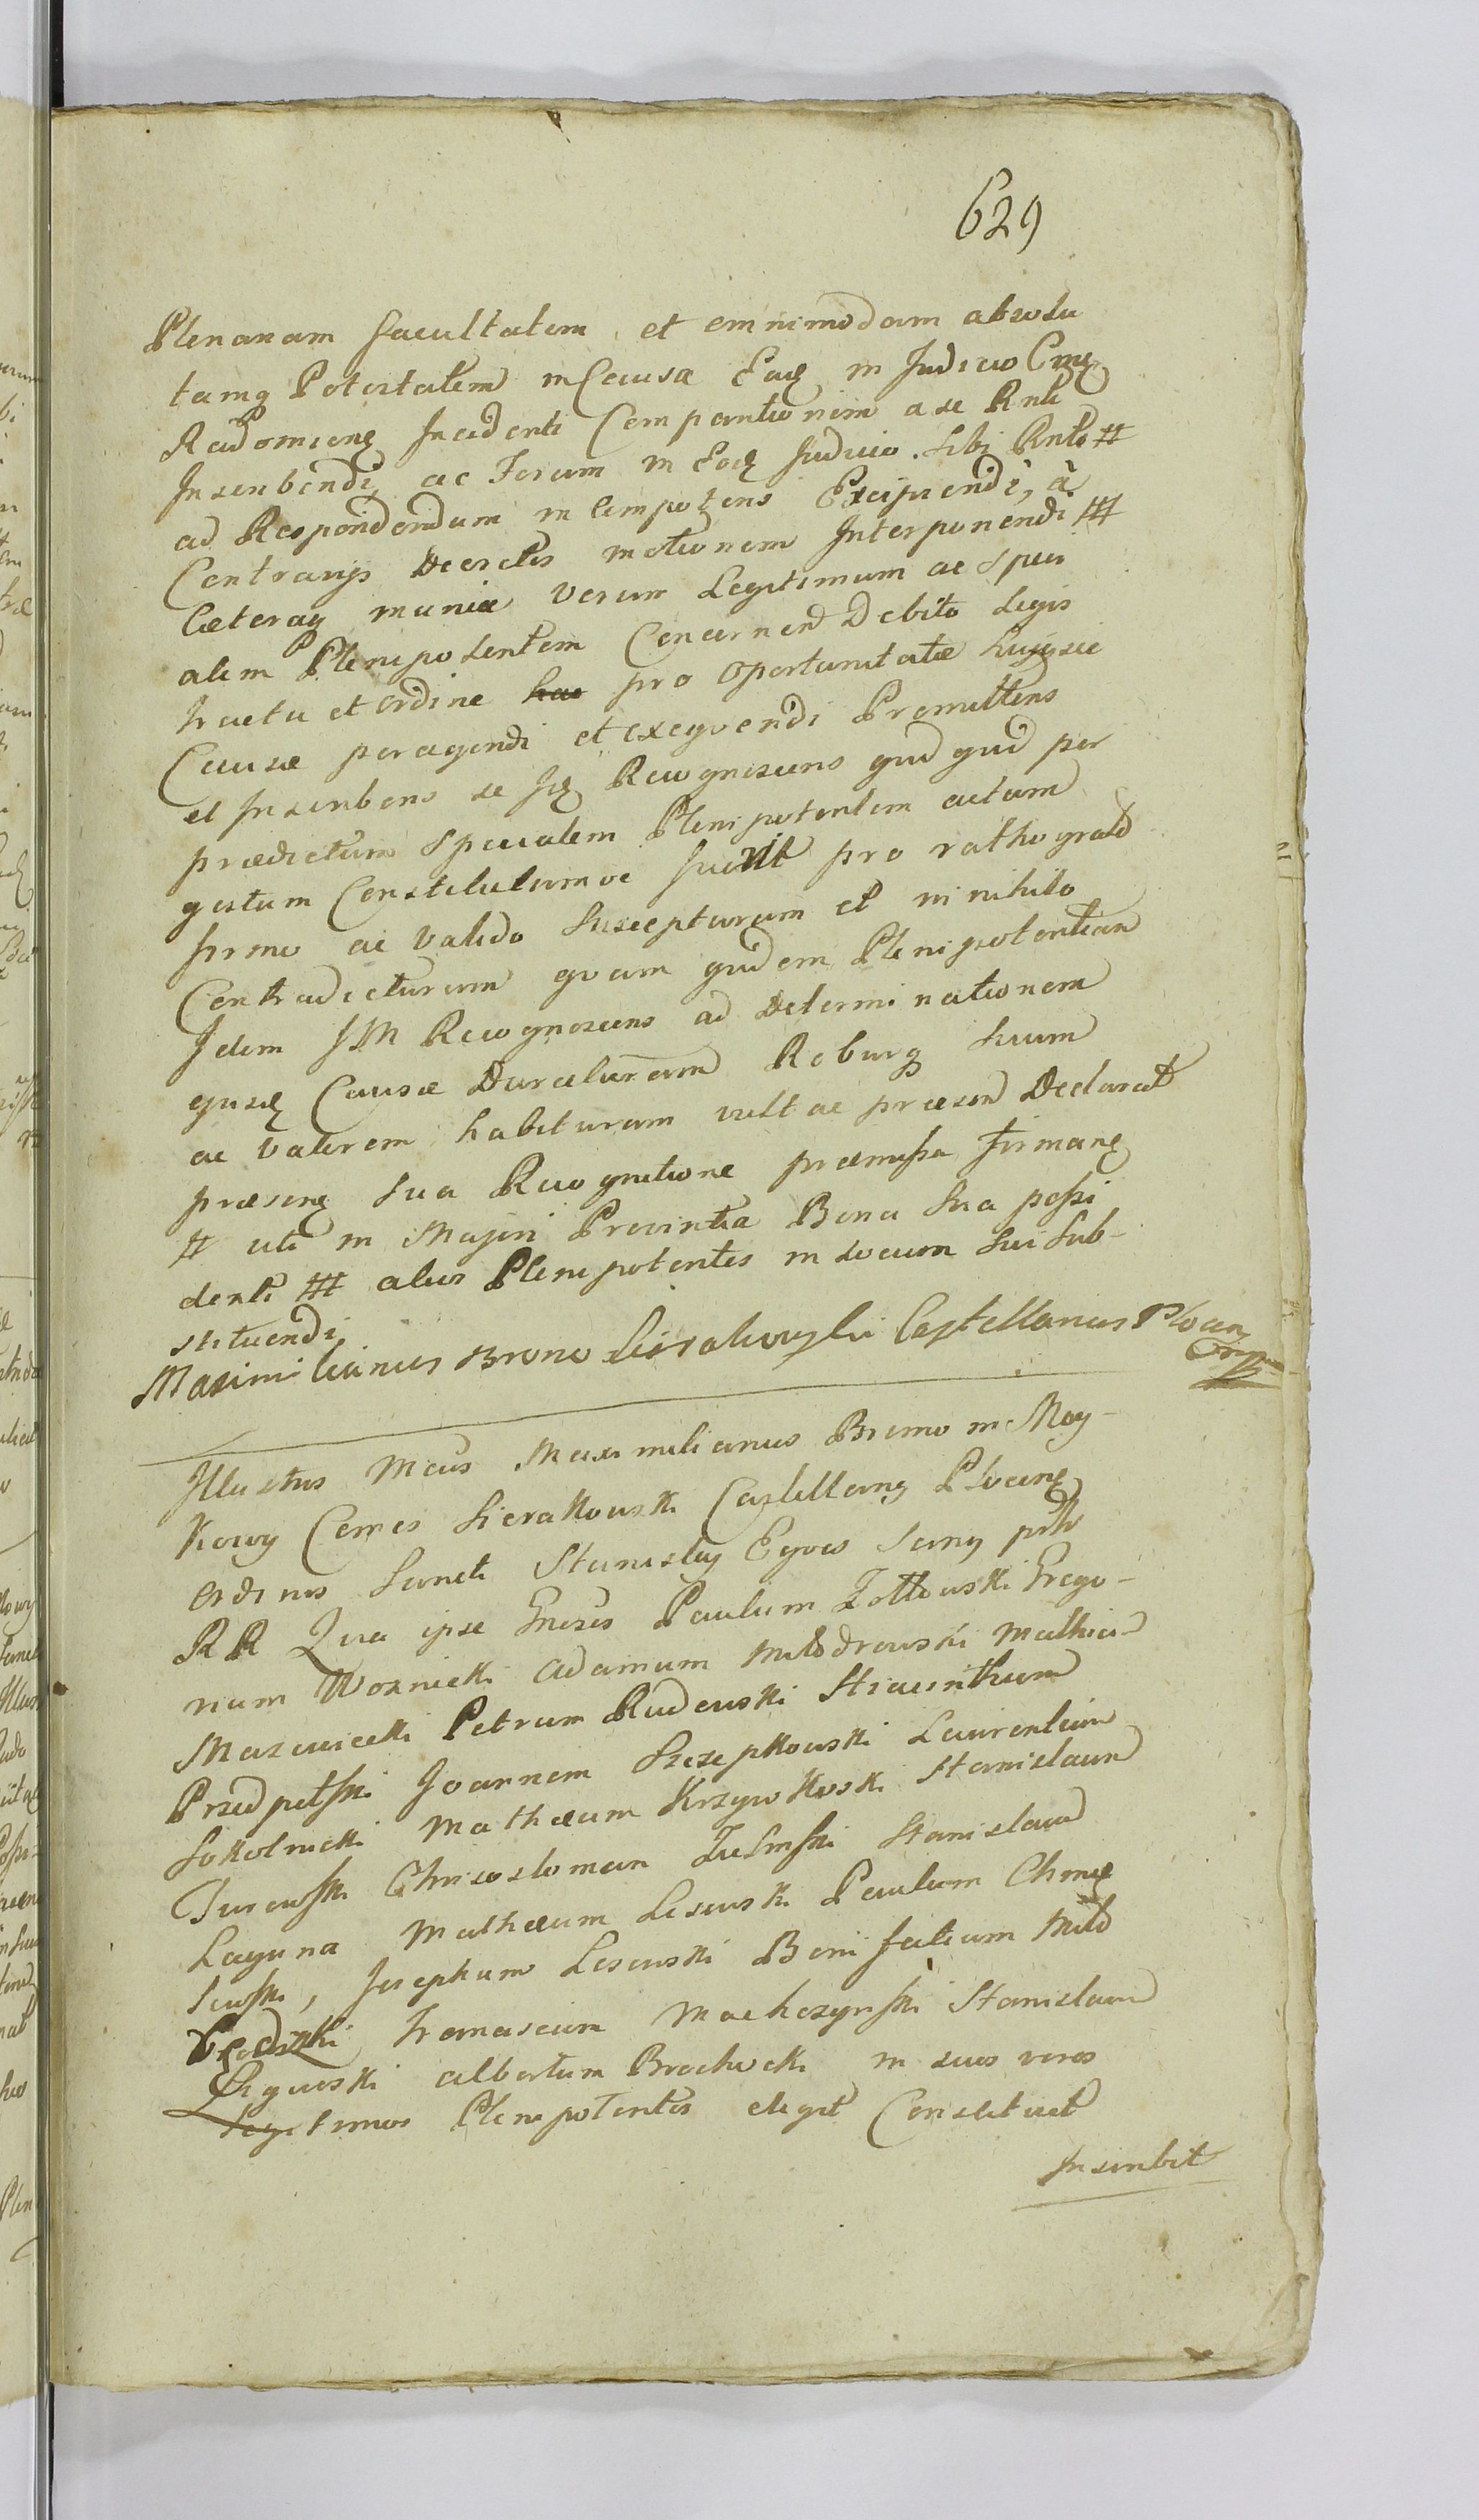 629
Plenariam facultatem et omnimodam absolu
tamq Potestatem in Causa Eaq in Judicio Cmq
Radomienq Incidenti Comparitionem a se Rnti
Inscribendi, ac Forum in Eoq Judicio sibi Rnti #
ad Respondendum incompotens Excipiendi, à
Contrarijs Decretis motionem Interponendi ##
Caeteraq munia verum Legitimum ac Speci
alem Plenipotentem Concernen Debito Legis
tractu et ordine pro oportunitate hujusce
Causae peragendi et exeqvendi Promittens
et Inscribens se Iq Recognoscens qnd qnd per
praedictum Specialem Plenipotentem actum
gestum Constitutumve fuerit pro ratho grato
firmo ac Valido Suscepturum et in nihilo
Contradicturum qvam quidem Plenipotentiam
Idem JM Recognoscens ad Determinationem
ejusq Causae Duraturam Roburq suum
ac Valorem habituram vult ac praesen Declarat
praesenq sua Recognitione praemissa firmanq
# uti in Majori Provintia Bona Sua possi
denti ## alios Plenipotentes in Locum sui Sub-
stituendi
Maximilianus Bruno Sierakowski Castellanus Plocenq
Illustris Mcus Maximilianus Bruno in May-
kowy Comes Sierakowski Castellanq Plocenq
ordinis Sancti Stanislaj Eqves Sanq prtr
RR Qua ipse Gnosos Paulum Zottowski Grego-
rium Woznicki Adamum Młodrowski Mathia
Mazowiecki Petrum Rudowski Hiacinthum
Przedpełski Joannem Szczepkowski Laurentium
Sokolnicki Mathaeum Krzywkoski Stanislaum
Turowski Chrisostomum Stanislaum
Laguna Mathaeum Lesuski Paulum Chmie
lewski, Josephum Lesouski Bonifatium
Franciscum Machczynski Stanislaum
Liguoski Albertum Brochocki in suos veros
legitimos Plenipotentes elegit Constituet
Inscribit